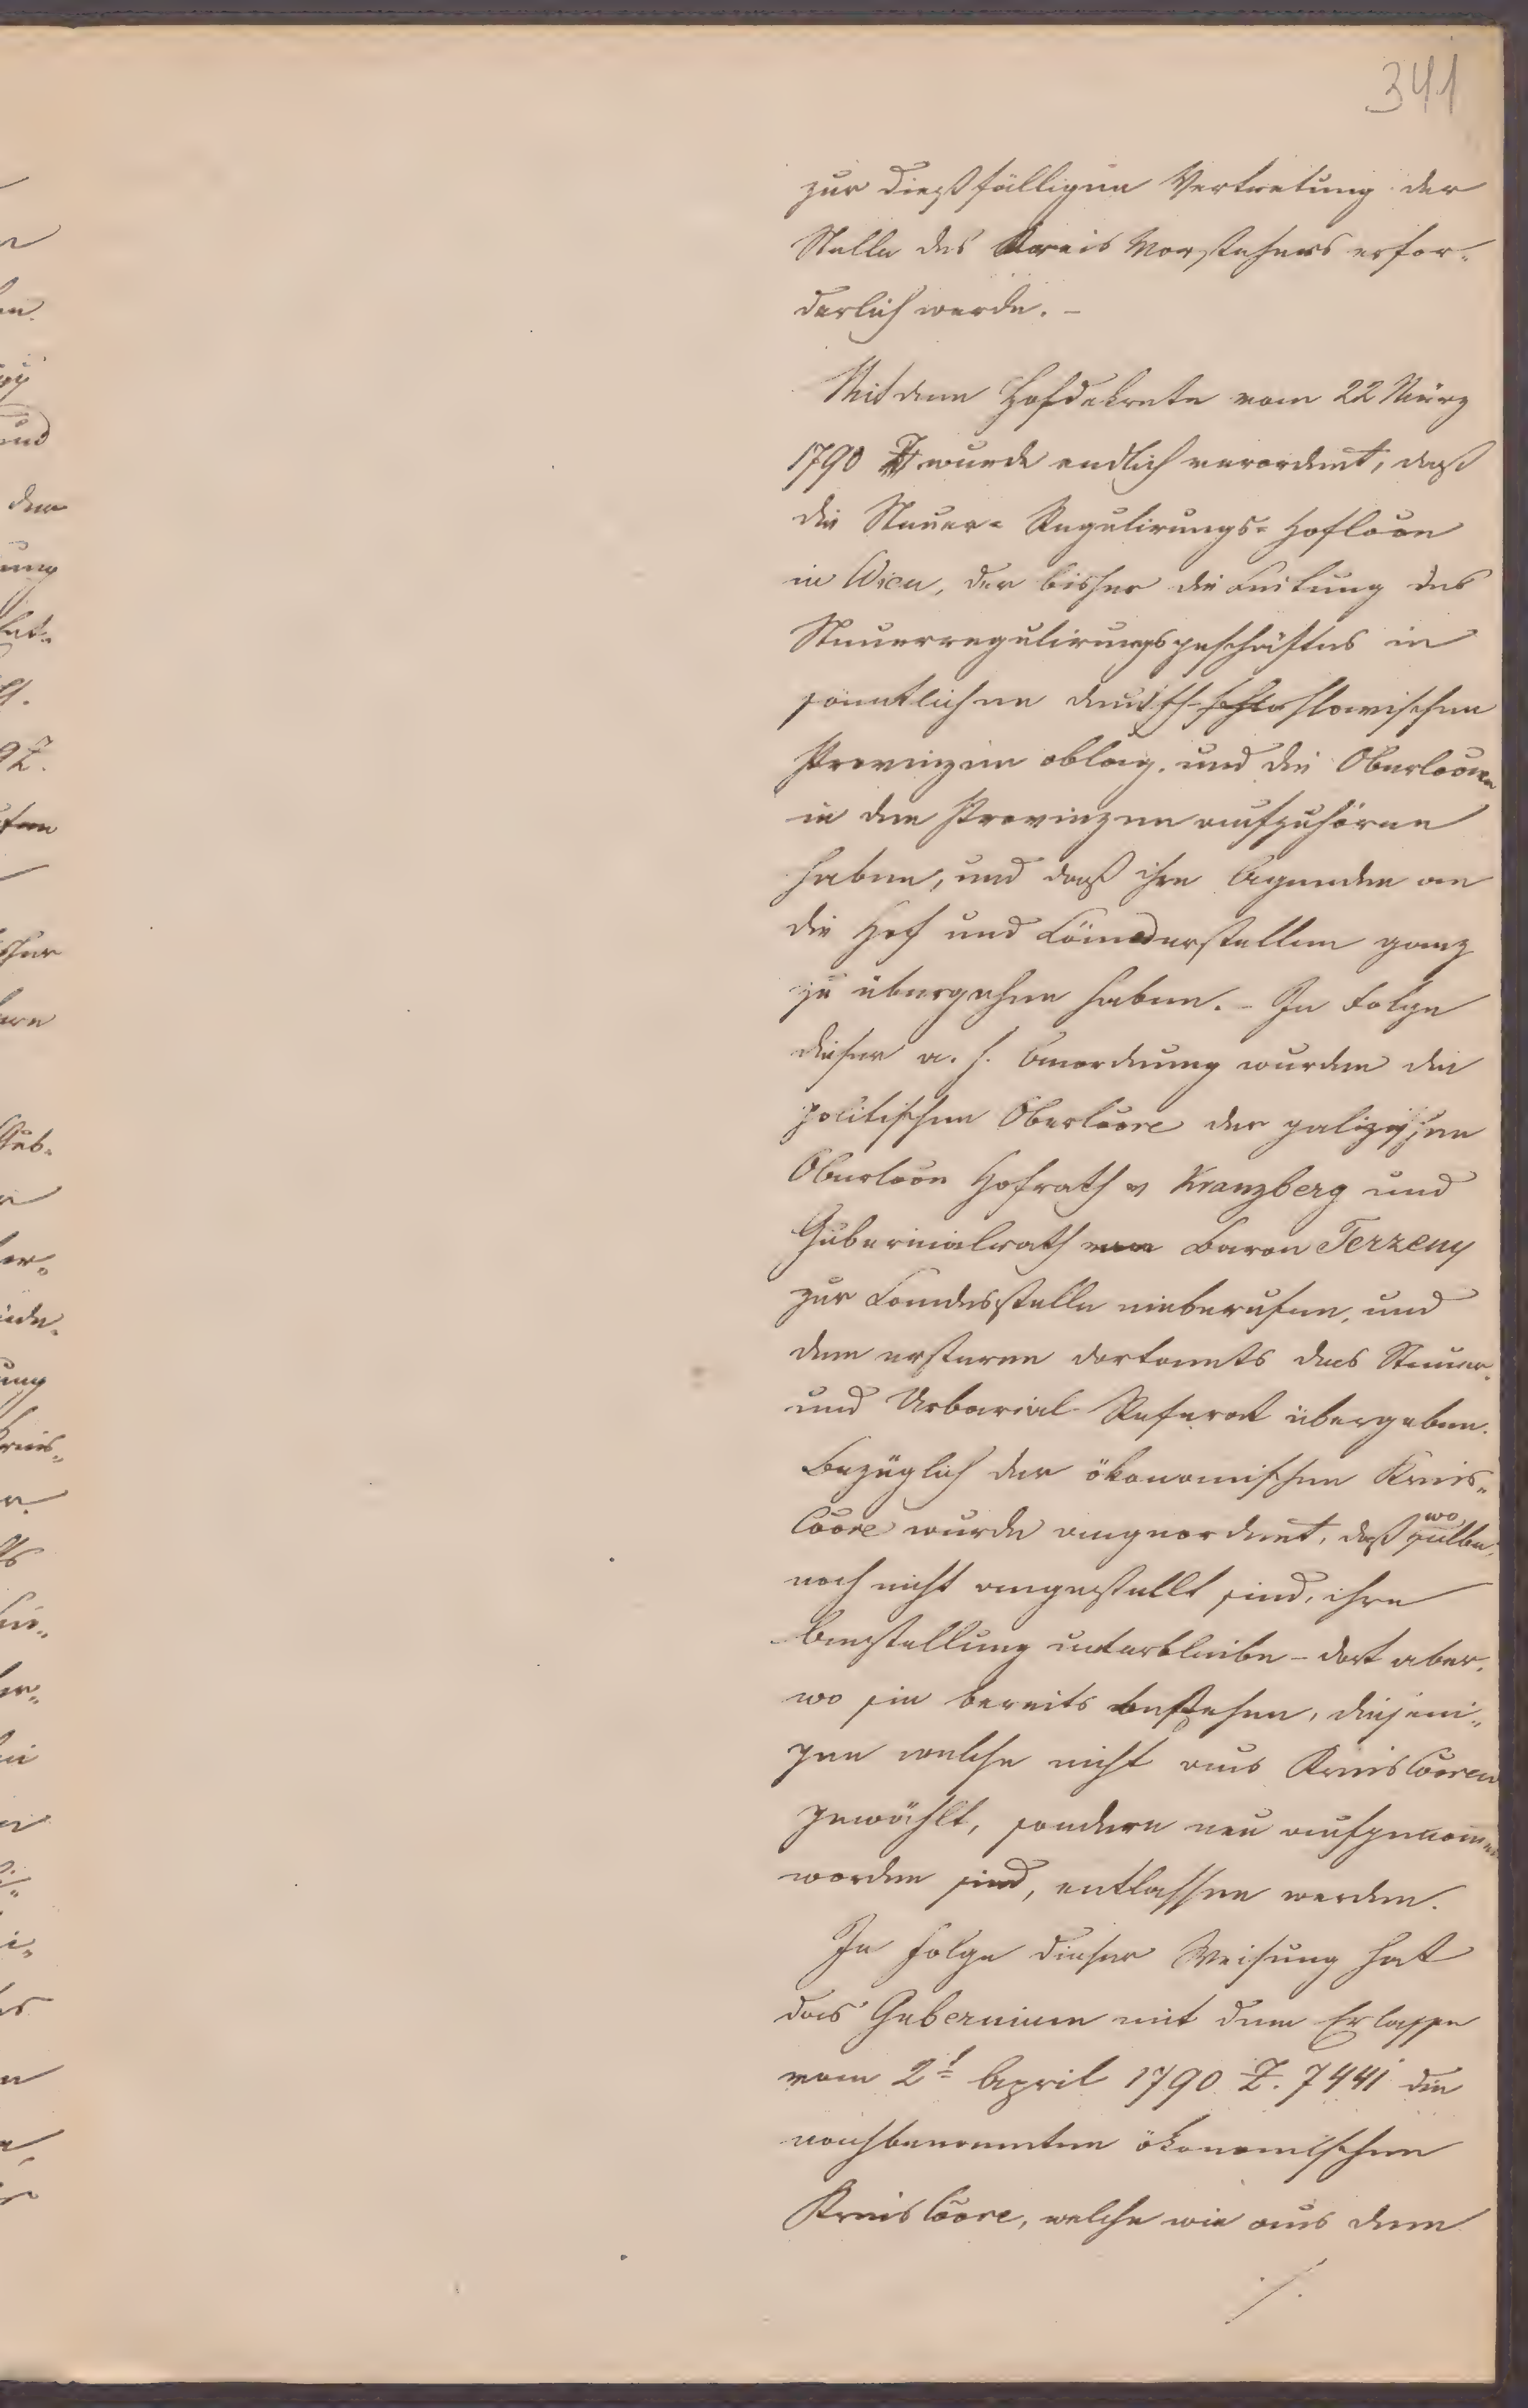 341
zur dießfälligen Vertretung der
Stelle des Kreis Vorstehers erfor-
derlich werde. -
Mit dem Hofdekrete vom 22 März
1790 wurde endlich verordnet, daß
die Steuer-Regulirungs-Hofcoon
in Wien, der bisher die Leitung des
Steuerregulirungsgeschäftes in
sämtlichen deutsch-slawischen
Provinzen oblag, und die Obercoonen
in den Provinzen aufzuhören
haben, und daß ihre Agenden an
die Hof und Länderstellen ganz
zu übergehen haben. - In Folge
dieser a. h. Anordnung wurden die
politischen Obercoore der galizischen
Obercoon Hofrath v Kranzberg und
Gubernialrath Baron Terzeny
zur Landesstelle einberufen, und
dem ersteren dortamts das Steuer-
und Urbarial-Referat übergeben.
Bezüglich der ökonomischen Kreis-
Coore wurde angeordnet, daß wo selbe
noch nicht angestellt sind, ihre
Anstellung unterbleibe - dort aber,
wo sie bereits bestehen, diejeni-
gen welche nicht aus Kreiscooren
gewählt, sondern neu aufgenommen
worden sind, entlassen werden.
In Folge dieser Weisung hat
das Gubernium mit dem Erlasse
vom 2t April 1790 Z. 7441 die
nachbenannten ökonomischen
Kreis Coore, welche wie aus dem
./.